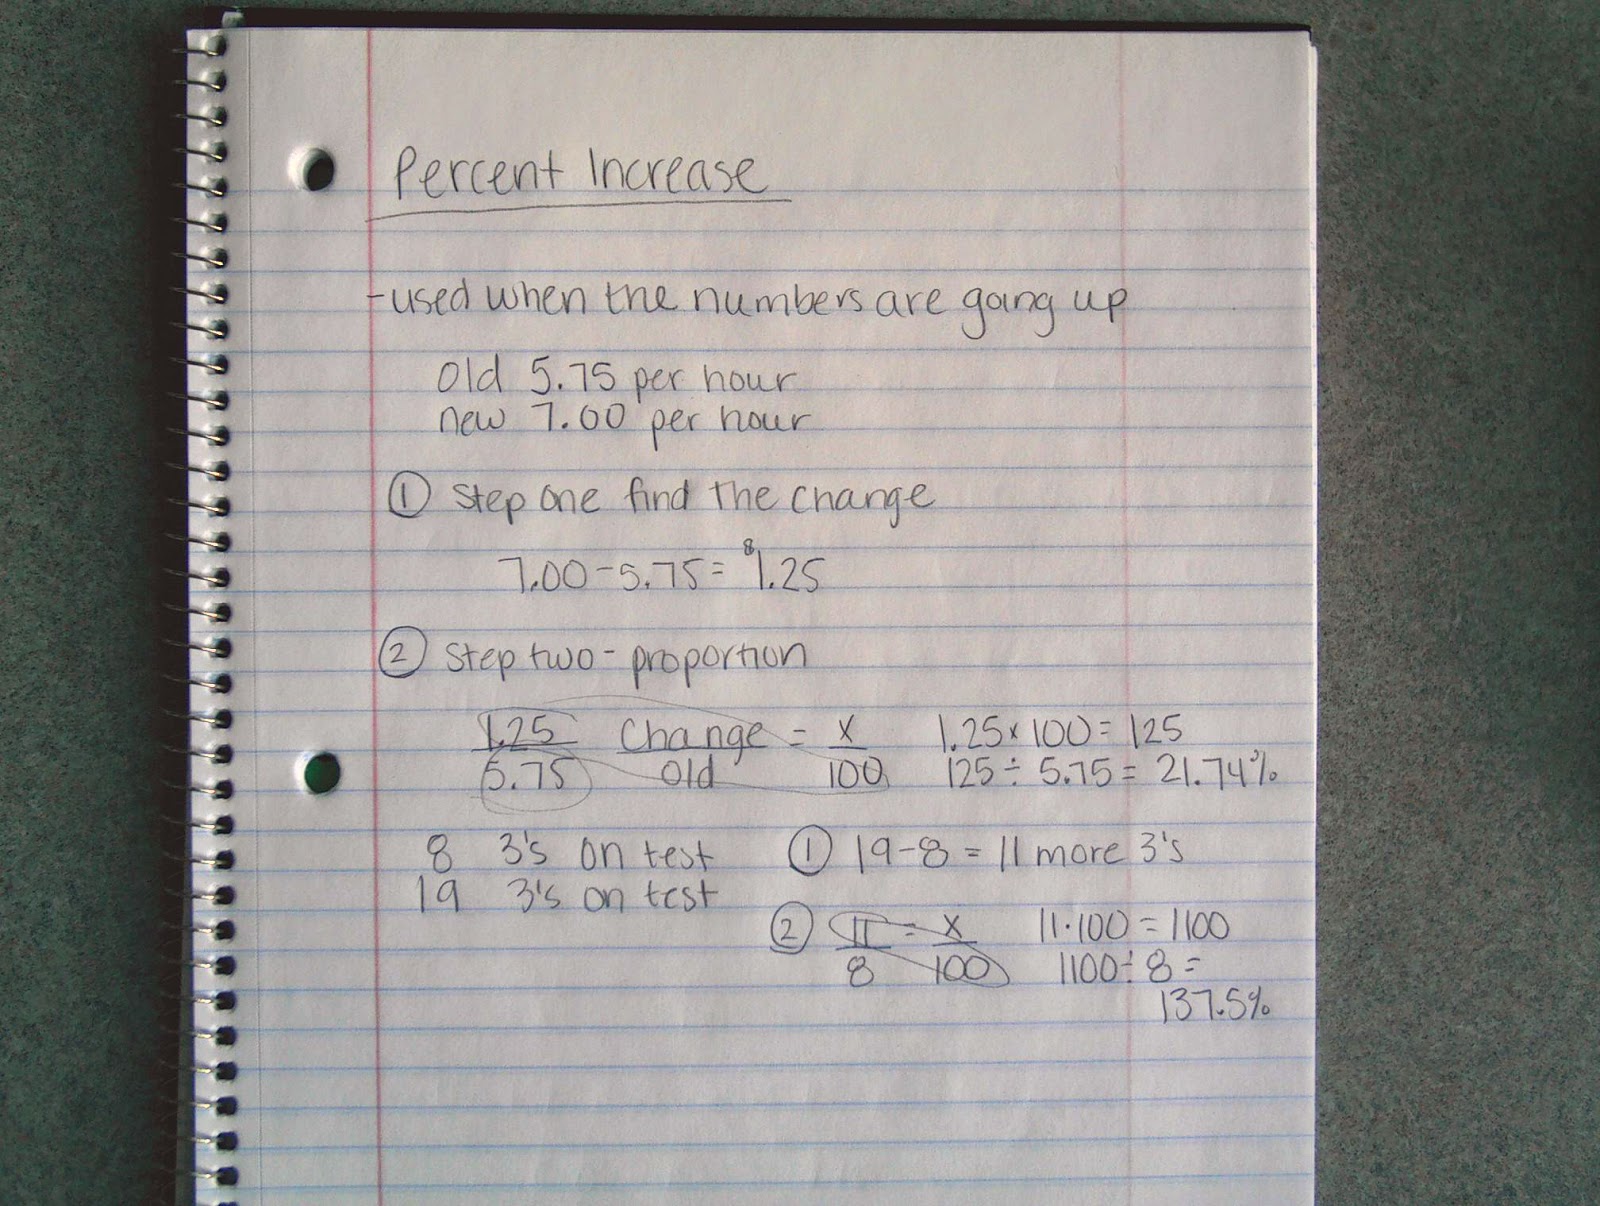 Percent Increase
-used when the numbers are going up
old 5.75 per hour
new 7.00 per hour
① Step one find the change
7.00-5.75= $1.25
② Step two- proportion
1.25 Change = x 1.25×100=125
5.75 old 100 125÷ 5.75= 21.74%
8 3's on test ① 19-8= 11 more 3's
19 3's on test
② 11 = x 11·100=1100
8 100 1100÷8=
137.5%